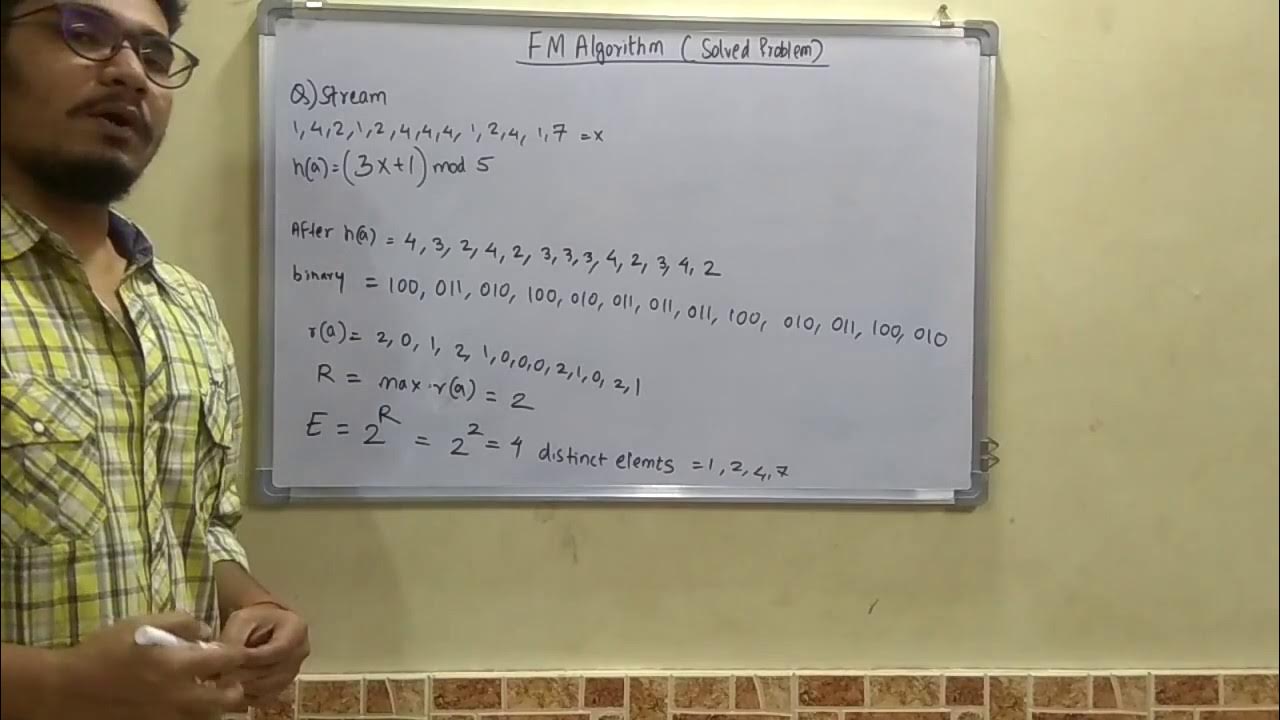 FM Algorithm (Solved Problem)
Q) Stream
1,4,2,1,2,4,4,4,1,2,4,1,7 =x
h(a)=(3x+1) mod 5
After h(a) = 4,3,2,4,2,3,3,3,4,2,3,4,2
binary = 100, 011, 010, 100, 010, 011, 011, 011, 100, 010, 011, 100, 010
r(a)= 2,0,1,2,1,0,0,0,2,1,0,2,1
R = max.r(a) = 2
E = 2^R = 2^2 = 4 distinct elemts =1,2,4,7